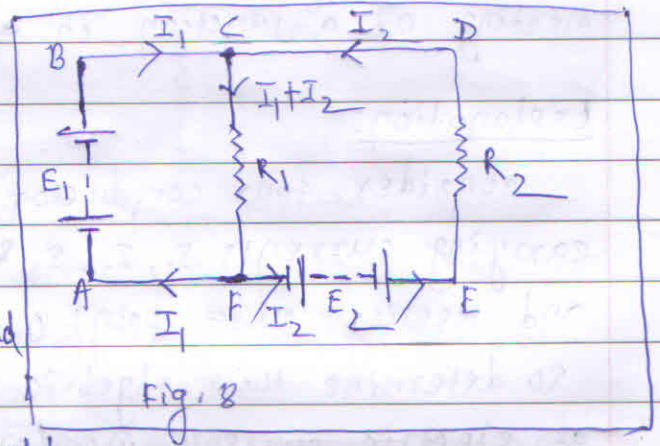 B I₁ C I₂ D
I₁+I₂
E₁ R₁ R₂
A F I₂ E₂ E
I₁
Fig. 8